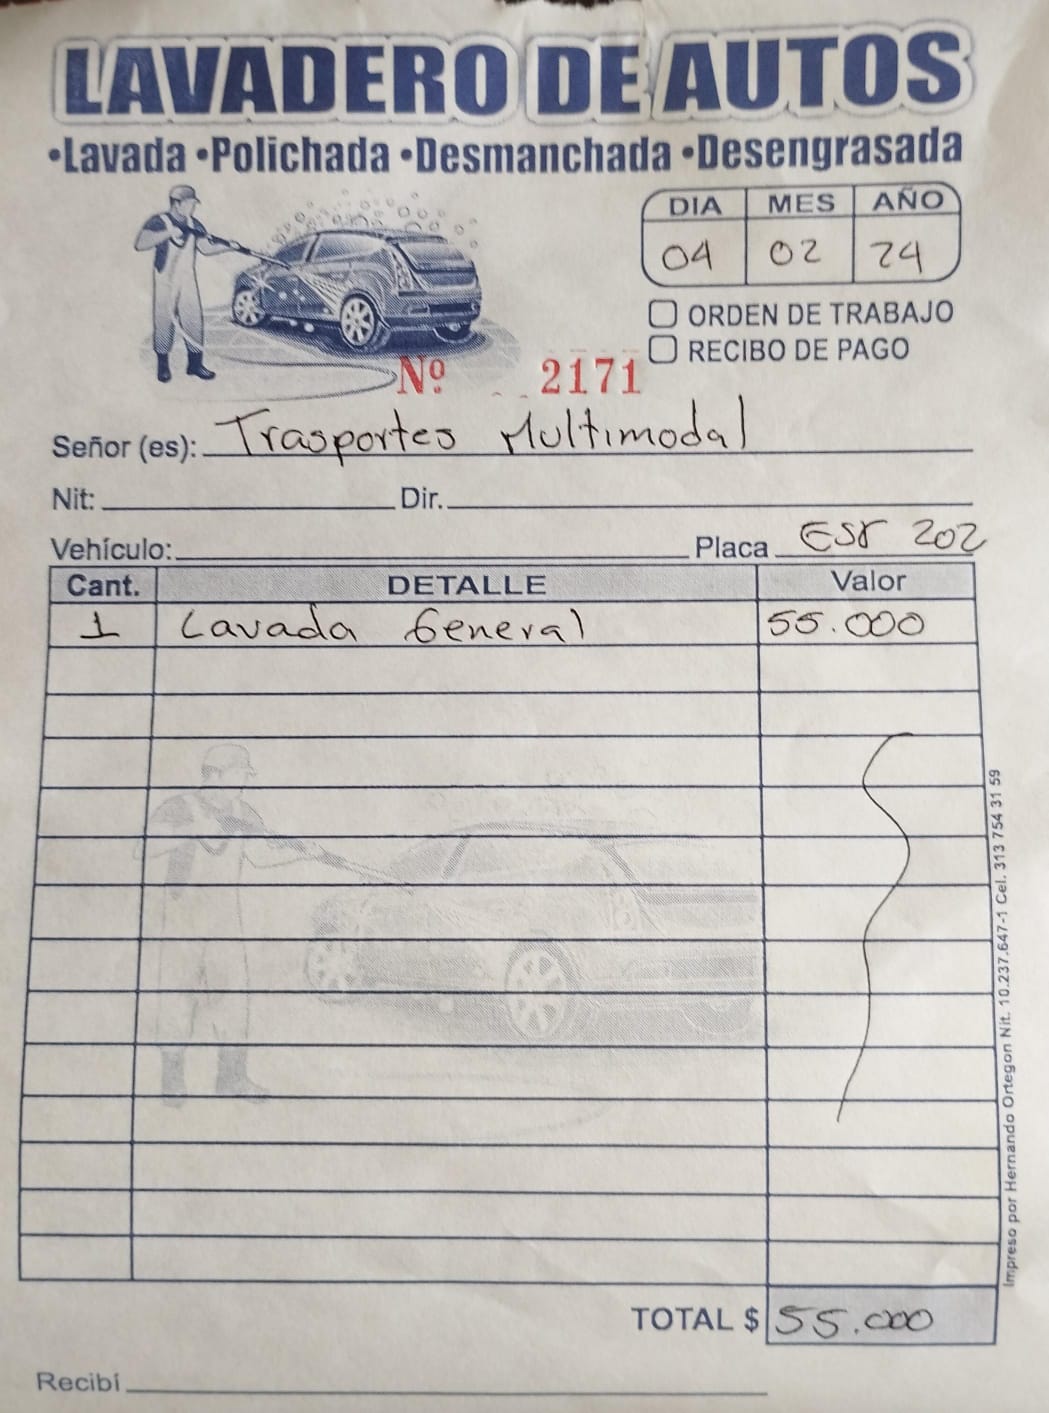 LAVADERO DE AUTOS
•Lavada •Polichada •Desmanchada •Desengrasada
DIA MES AÑO
04 02 24
ORDEN DE TRABAJO
RECIBO DE PAGO
Nº 2171
Señor (es): Trasportes Multimodal
Nit: Dir.
Vehículo: Placa ESR 202
Cant. DETALLE Valor
1 Lavada General 55.000
TOTAL $ 55.000
Recibí
Impreso por Hernando Ortegon Nit. 10.237.647-1 Cel. 313 754 31 59